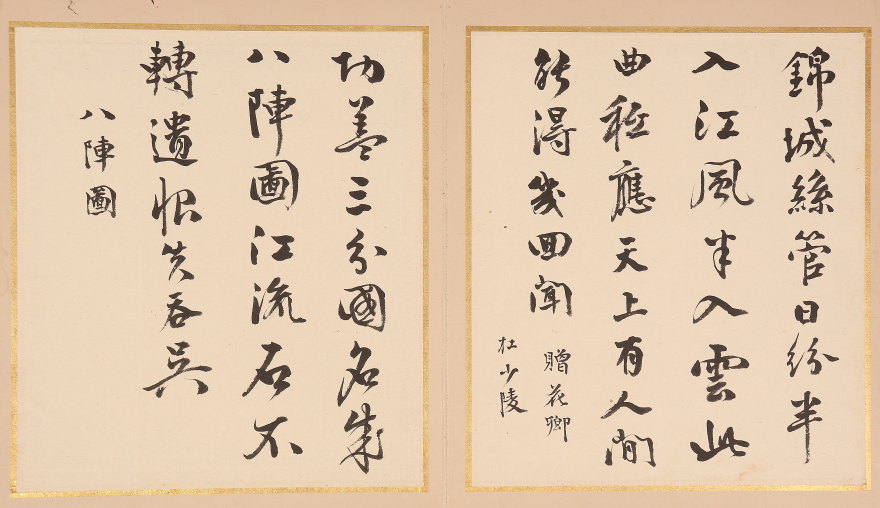 錦城絲管日紛半
入江風半入雲此
曲秪應天上有人間
能得幾回聞
贈花卿
杜少陵
功蓋三分國名成
八陣圖江流石不
轉遺恨失吞吳
八陣圖